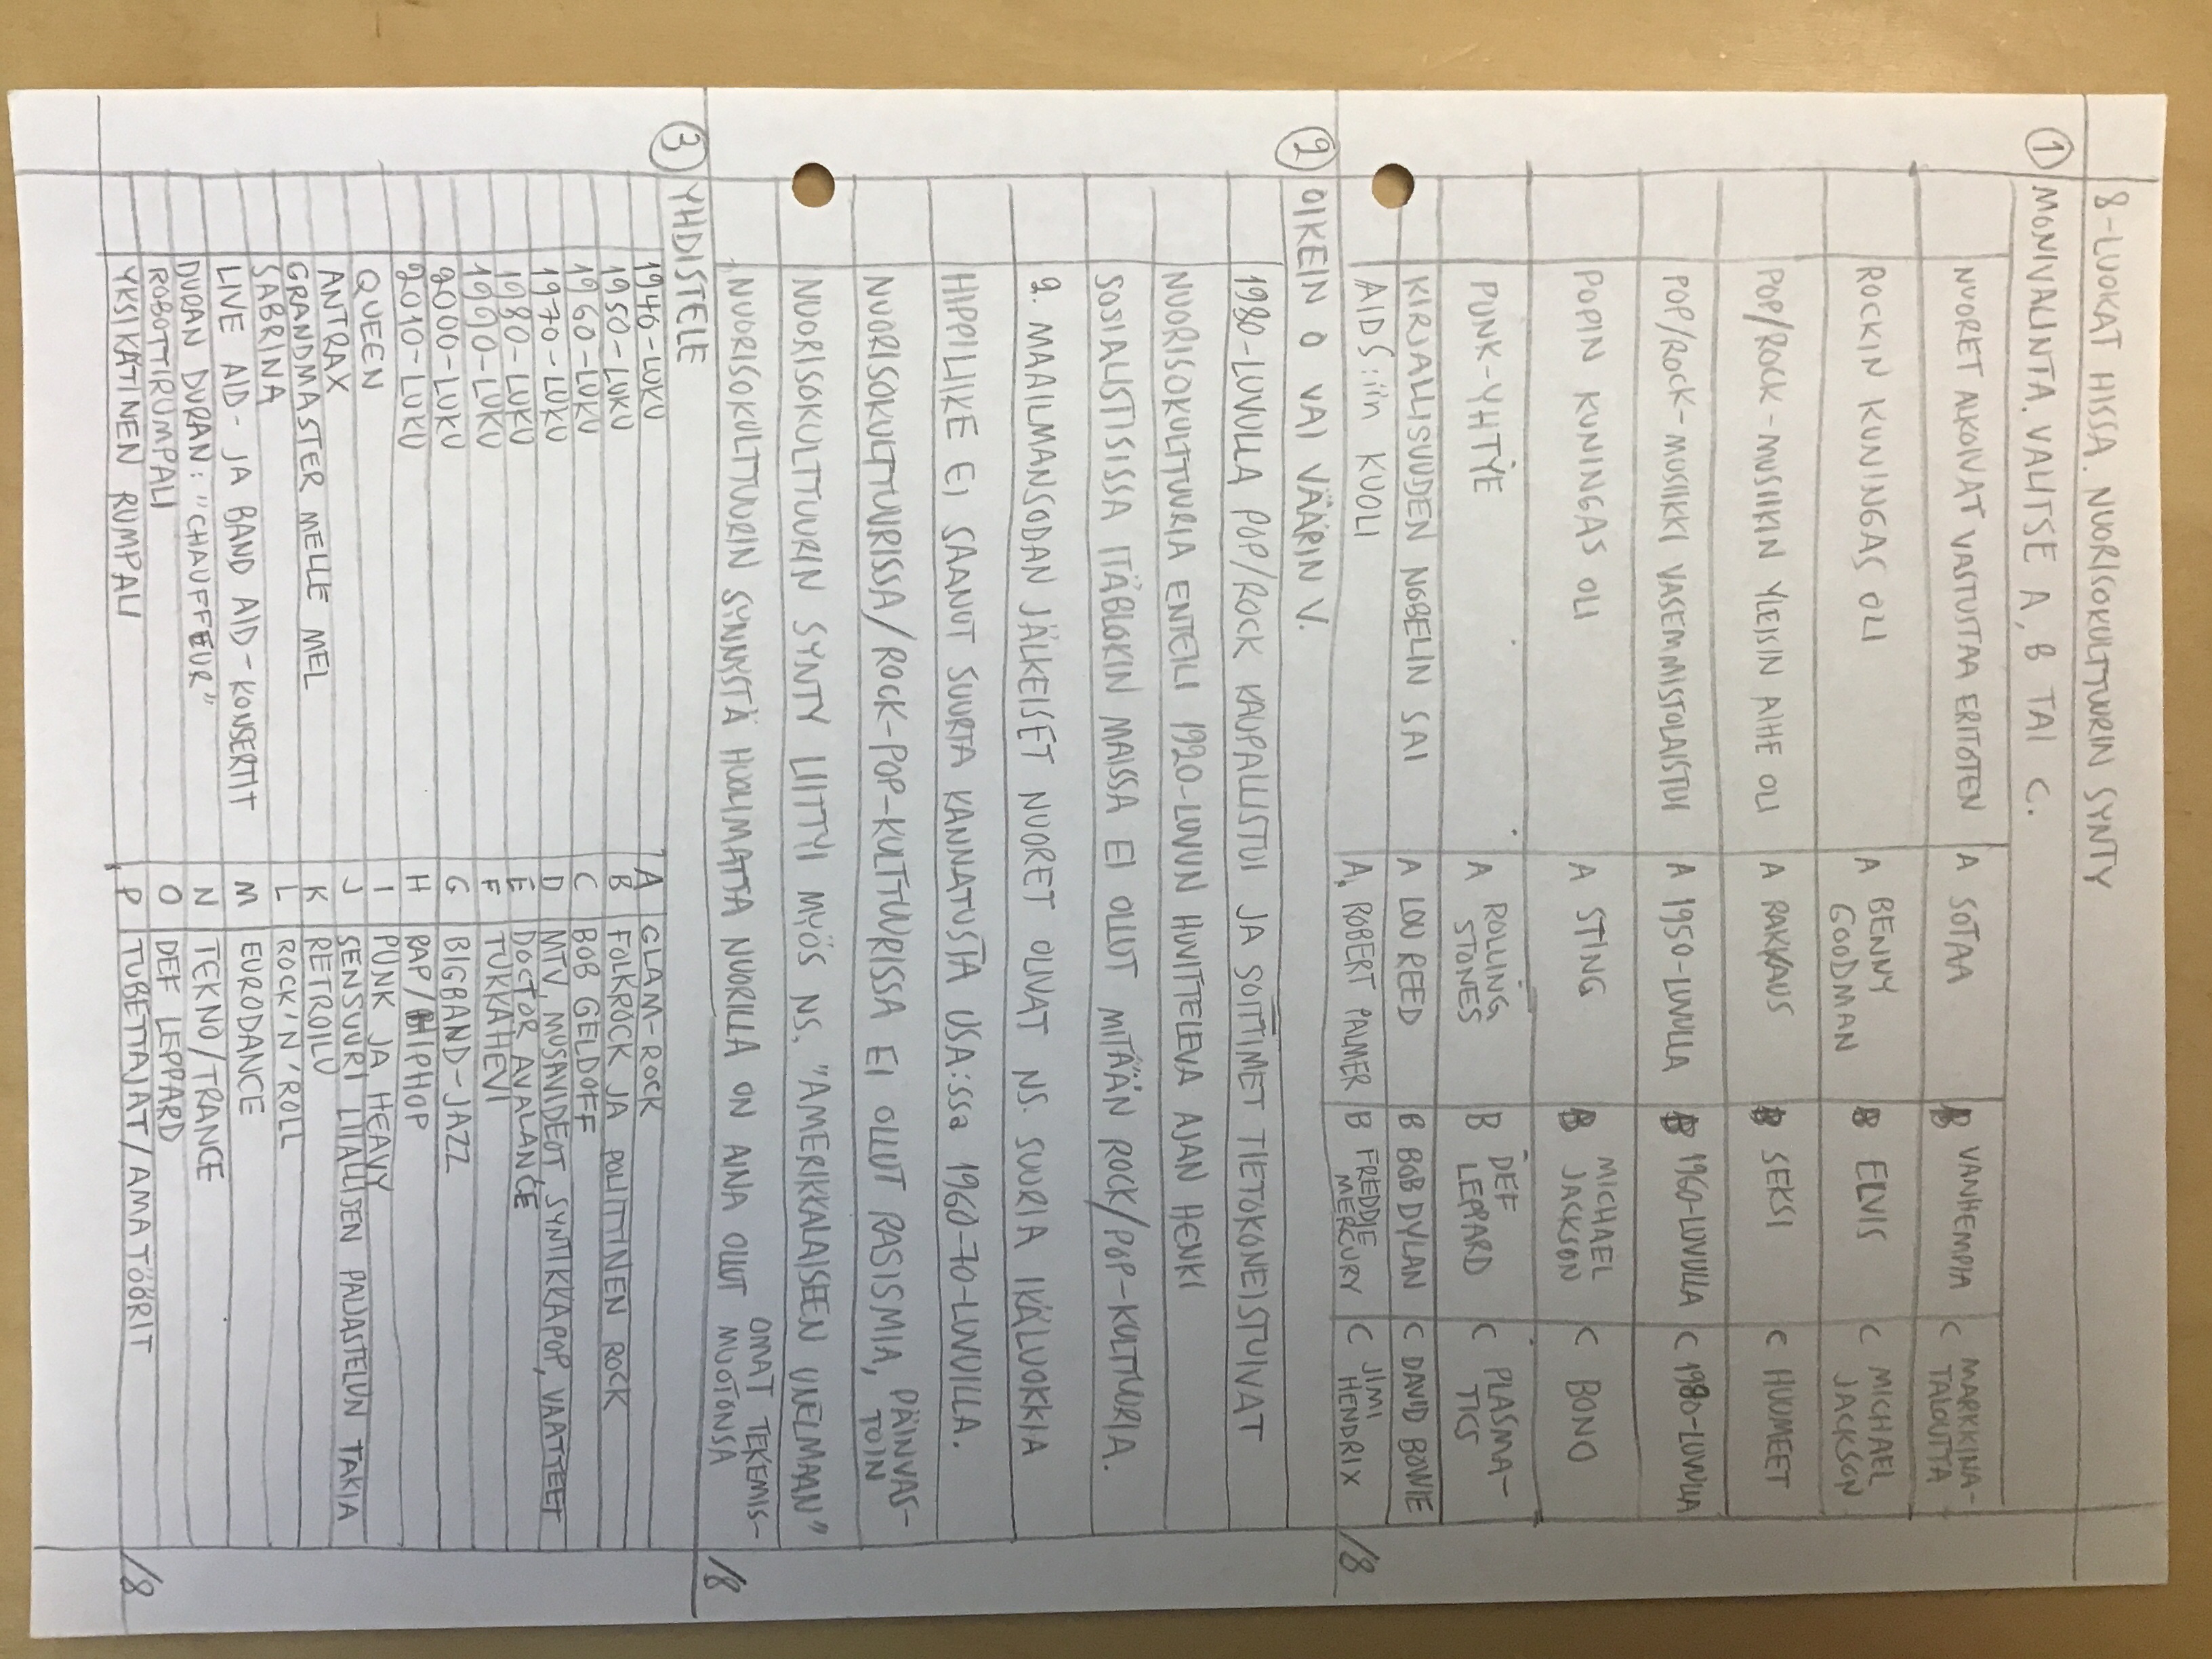 8-LUOKAT HISSA. NUORISOKULTTUURIN SYNTY
① MONIVALINTA. VALITSE A, B TAI C.
NUORET ALKOIVAT VASTUSTAA ERITOTEN A SOTAA B VANHEMPIA C MARKKINA-
TALOUTTA
ROCKIN KUNINGAS OLI A BENNY GOODMAN B ELVIS C MICHAEL JACKSON
POP/ROCK-MUSIIKIN YLEISIN AIHE OLI A RAKKAUS B SEKSI C HUUMEET
POP/ROCK-MUSIIKKI VASEMMISTOLAISTUI A 1950-LUVULLA B 1960-LUVULLA C 1980-LUVULLA
POPIN KUNINGAS OLI A STING B MICHAEL JACKSON C BONO
PUNK-YHTYE A ROLLING STONES B DEF LEPPARD C PLASMA-
TICS
KIRJALLISUUDEN NOBELIN SAI A LOU REED B BOB DYLAN C DAVID BOWIE
AIDS:iin KUOLI A. ROBERT PALMER B FREDDIE MERCURY C JIMI HENDRIX
/8
② OIKEIN O VAI VÄÄRIN V.
1980-LUVULLA POP/ROCK KAUPALLISTUI JA SOITTIMET TIETOKONEISTUIVAT
NUORISOKULTTUURIA ENTEILI 1920-LUVUN HUVITTELEVA AJAN HENKI
SOSIALISTISISSA ITÄBLOKIN MAISSA EI OLLUT MITÄÄN ROCK/POP-KULTTURIA.
2. MAAILMANSODAN JÄLKEISET NUORET OLIVAT NS. SUURIA IKÄLUOKKIA
HIPPILIIKE EI SAANUT SUURTA KANNATUSTA USA:ssa 1960-70-LUVUILLA.
NUORISOKULTTUURISSA/ROCK-POP-KULTTUURISSA EI OLLUT RASISMIA, PÄINVAS-
TOIN
NUORISOKULTTUURIN SYNTY LIITTYI MYÖS NS. "AMERIKKALAISEEN UNELMAAN"
NUORISOKULTTUURIN SYNNYSTÄ HUOLIMATTA NUORILLA ON AINA OLLUT OMAT TEKEMIS-
MUOTONSA
/8
③ YHDISTELE
1940-LUKU A GLAM-ROCK
1950-LUKU B FOLKROCK JA POLIITTINEN ROCK
1960-LUKU C BOB GELDOFF
1970-LUKU D MTV, MUSAVIDEOT, SYNTIKKAPOP, VAATTEET
1980-LUKU E DOCTOR AVALANCE
1990-LUKU F TUKKAHEVI
2000-LUKU G BIGBAND-JAZZ
2010-LUKU H RAP/HIPHOP
QUEEN I PUNK JA HEAVY
ANTRAX J SENSUURI LIIALLISEN PALJASTELUN TAKIA
GRANDMASTER MELLE MEL K RETROILU
SABRINA L ROCK'N'ROLL
LIVE AID- JA BAND AID-KONSERTIT M EURODANCE
DURAN DURAN: "CHAUFFEUR" N TEKNO/TRANCE
ROBOTTIRUMPALI O DEF LEPPARD
YKSIKÄTINEN RUMPALI P TUBETTAJAT/AMATÖÖRIT
/8